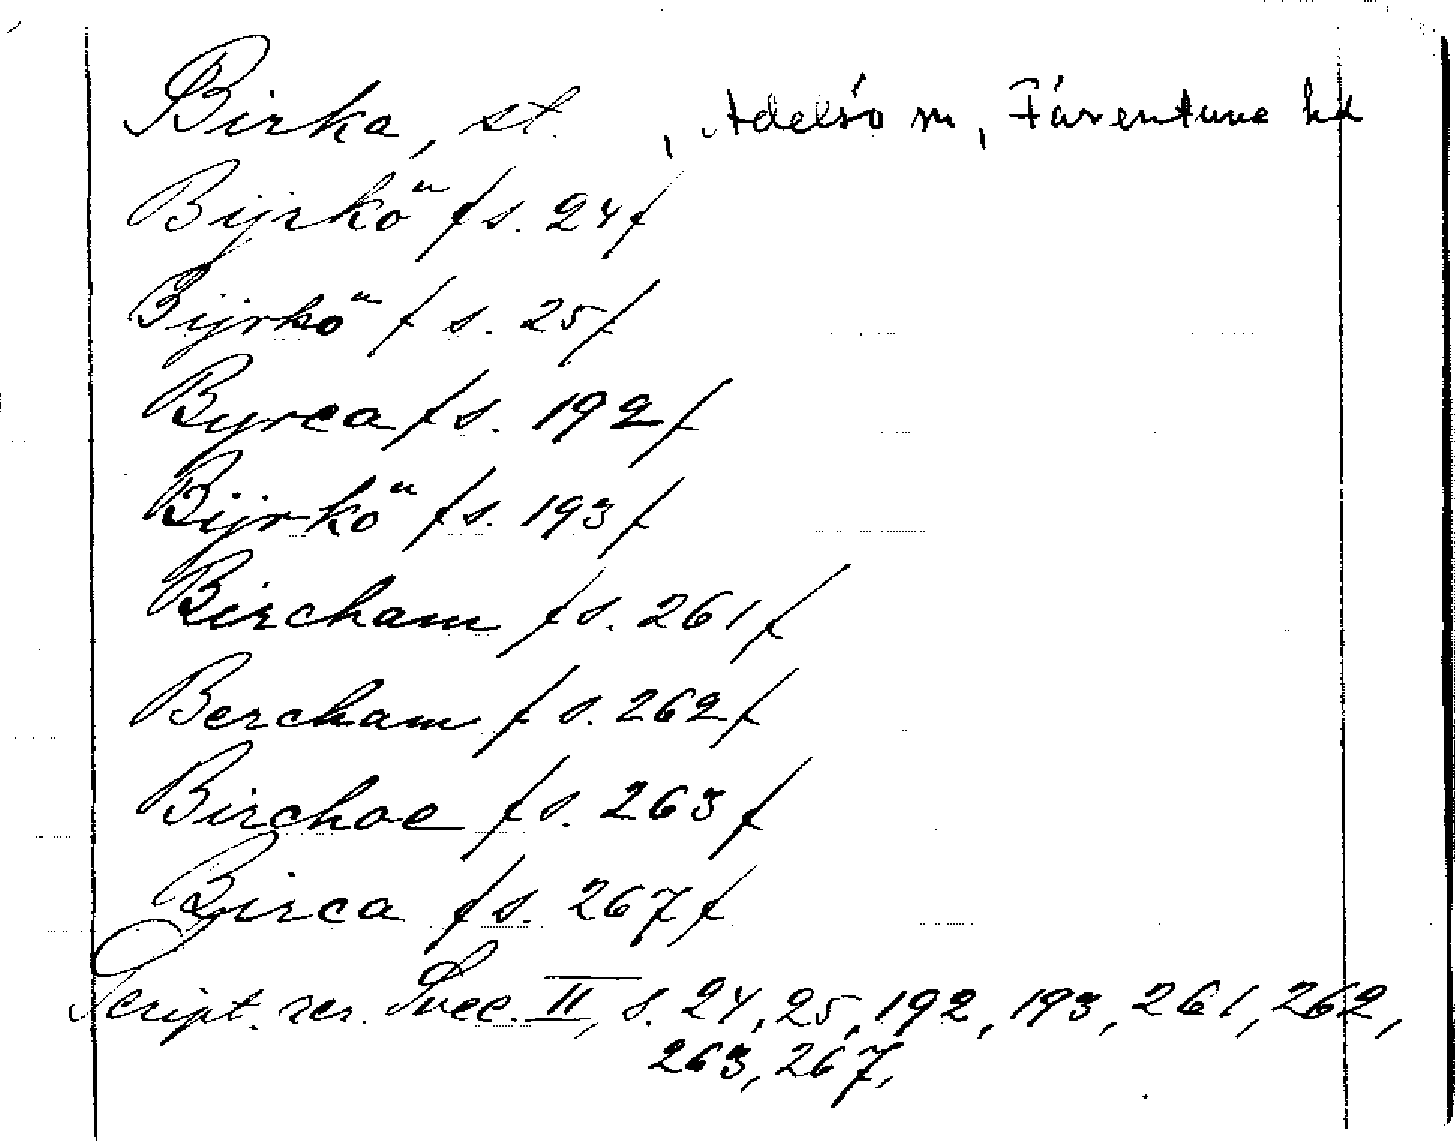 Birka, st. , Adelsö sn, Färentuna hd
Bijrkö" / s. 24 /
Bijrkö" / s. 25 /
Byrca / s. 192 /
Bijrkö" / s. 193 /
Bircham / s. 261 /
Bercham / s. 262 /
Birchoe / s. 263 /
Birca / s. 267 /
Script. rer. Svec. II, s. 24, 25, 192, 193, 261, 262,
263, 267,